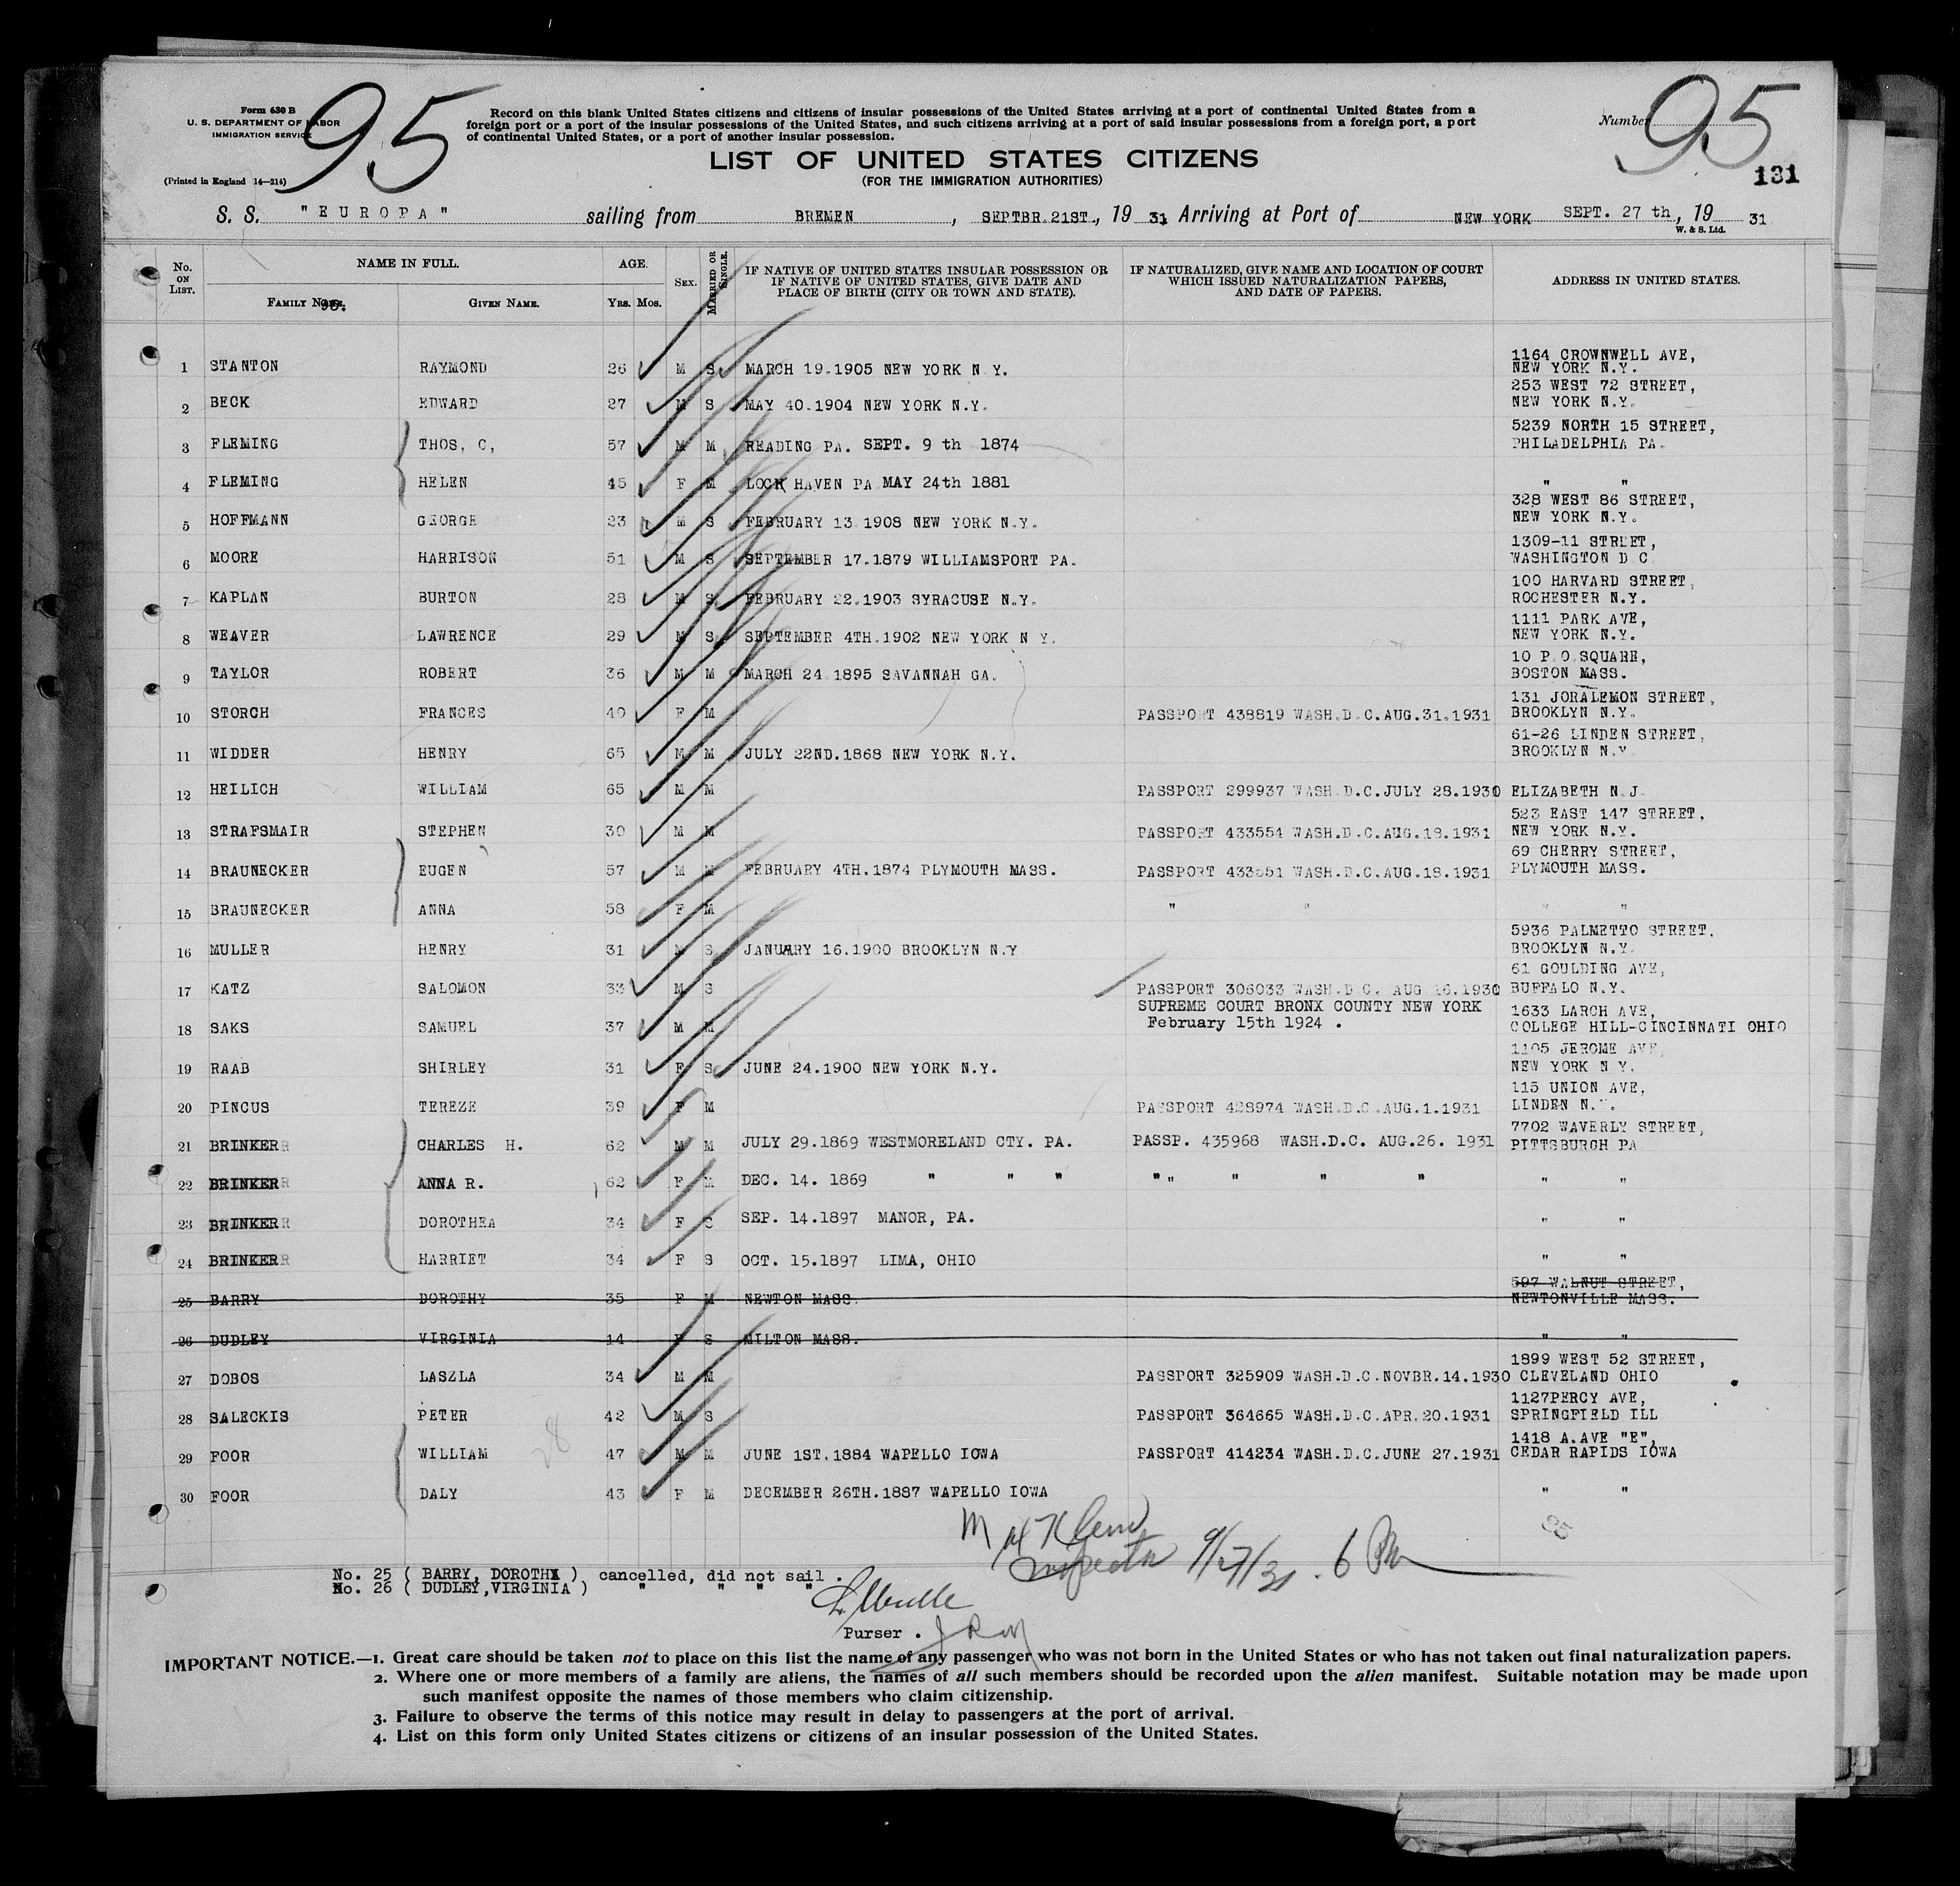 95 95
Form 630 B
U. S. DEPARTMENT OF LABOR
IMMIGRATION SERVICE
(Printed in England 14—214)
Record on this blank United States citizens and citizens of insular possessions of the United States arriving at a port of continental United States from a
foreign port or a port of the insular possessions of the United States, and such citizens arriving at a port of said insular possessions from a foreign port, a port
of continental United States, or a port of another insular possession.
Number
LIST OF UNITED STATES CITIZENS
(FOR THE IMMIGRATION AUTHORITIES)
131
S. S. "EUROPA" sailing from BREMEN, SEPTBR.21ST., 19 31 Arriving at Port of NEW YORK SEPT. 27 th, 19 31
W. & S. Ltd.
No. ON LIST. NAME IN FULL. FAMILY NAME. GIVEN NAME. AGE. YRS. MOS. SEX. MARRIED OR SINGLE. IF NATIVE OF UNITED STATES INSULAR POSSESSION OR IF NATIVE OF UNITED STATES, GIVE DATE AND PLACE OF BIRTH (CITY OR TOWN AND STATE). IF NATURALIZED, GIVE NAME AND LOCATION OF COURT WHICH ISSUED NATURALIZATION PAPERS, AND DATE OF PAPERS. ADDRESS IN UNITED STATES.
95.
1 STANTON RAYMOND 26 M S MARCH 19.1905 NEW YORK N Y. 1164 CROWNWELL AVE, NEW YORK N.Y.
2 BECK EDWARD 27 M S MAY 40.1904 NEW YORK N.Y. 253 WEST 72 STREET, NEW YORK N.Y.
3 FLEMING THOS, C, 57 M M READING PA. SEPT. 9 th 1874 5239 NORTH 15 STREET, PHILADELPHIA PA.
4 FLEMING HELEN 45 F M LOCK HAVEN PA MAY 24th 1881 " "
5 HOFFMANN GEORGE 23 M S FEBRUARY 13 1908 NEW YORK N.Y. 328 WEST 86 STREET, NEW YORK N.Y.
6 MOORE HARRISON 51 M S SEPTEMBER 17.1879 WILLIAMSPORT PA. 1309-11 STREET, WASHINGTON D C
7 KAPLAN BURTON 28 M S FEBRUARY 22.1903 SYRACUSE N.Y. 100 HARVARD STREET, ROCHESTER N.Y.
8 WEAVER LAWRENCE 29 M S SEPTEMBER 4TH.1902 NEW YORK N Y. 1111 PARK AVE, NEW YORK N.Y.
9 TAYLOR ROBERT 36 M M MARCH 24 1895 SAVANNAH GA. 10 P.O.SQUARE, BOSTON MASS.
10 STORCH FRANCES 40 F M PASSPORT 438819 WASH.D.C.AUG.31.1931 131 JORALEMON STREET, BROOKLYN N.Y.
11 WIDDER HENRY 65 M M JULY 22ND.1868 NEW YORK N.Y. 61-26 LINDEN STREET, BROOKLYN N.Y
12 HEILICH WILLIAM 65 M M PASSPORT 299937 WASH.D.C.JULY 28.1930 ELIZABETH N.J.
13 STRAFSMAIR STEPHEN 30 M M PASSPORT 433554 WASH.D.C.AUG.18.1931 523 EAST 147 STREET, NEW YORK N.Y.
14 BRAUNECKER EUGEN 57 M M FEBRUARY 4TH.1874 PLYMOUTH MASS. PASSPORT 433551 WASH.D.C.AUG.18.1931 69 CHERRY STREET, PLYMOUTH MASS.
15 BRAUNECKER ANNA 58 F M " " " "
16 MULLER HENRY 31 M S JANUARY 16.1900 BROOKLYN N.Y 5936 PALMETTO STREET, BROOKLYN N.Y.
17 KATZ SALOMON 33 M S PASSPORT 306033 WASH.D.C. AUG 16.1930 61 GOULDING AVE, BUFFALO N.Y.
18 SAKS SAMUEL 37 M M SUPREME COURT BRONX COUNTY NEW YORK February 15th 1924 . 1633 LARCH AVE, COLLEGE HILL-CINCINNATI OHIO
19 RAAB SHIRLEY 31 F S JUNE 24.1900 NEW YORK N.Y. 1105 JEROME AVE, NEW YORK N Y.
20 PINCUS TEREZE 39 F M PASSPORT 428974 WASH.D.C.AUG.1.1931 115 UNION AVE, LINDEN
21 BRINKER CHARLES H. 62 M M JULY 29.1869 WESTMORELAND CTY. PA. PASSP. 435968 WASH.D.C. AUG.26. 1931 7702 WAVERLY STREET, PITTSBURGH PA
22 BRINKER ANNA R. 62 F M DEC. 14. 1869 " " " " " " " " " "
23 BRINKER DOROTHEA 34 F S SEP. 14.1897 MANOR, PA. " "
24 BRINKER HARRIET 34 F S OCT. 15.1897 LIMA, OHIO " "
25 BARRY DOROTHY 35 F M NEWTON MASS. 597 WALNUT STREET, NEWTONVILLE MASS.
26 DUDLEY VIRGINIA 14 F S MILTON MASS. " "
27 DOBOS LASZLA 34 M M PASSPORT 325909 WASH.D.C.NOVBR.14.1930 1899 WEST 52 STREET, CLEVELAND OHIO
28 SALECKIS PETER 42 M S PASSPORT 364665 WASH.D.C.APR.20.1931 1127PERCY AVE, SPRINGFIELD ILL
29 FOOR WILLIAM 47 M M JUNE 1ST.1884 WAPELLO IOWA PASSPORT 414234 WASH.D.C.JUNE 27.1931 1418 A.AVE "E", CEDAR RAPIDS IOWA
30 FOOR DALY 43 F M DECEMBER 26TH.1887 WAPELLO IOWA " "
28
Inspector 9/27/31. 6 Pm
No. 25 ( BARRY, DOROTHY ) cancelled, did not sail .
No. 26 ( DUDLEY,VIRGINIA ) " " " "
Purser .
IMPORTANT NOTICE.—1. Great care should be taken not to place on this list the name of any passenger who was not born in the United States or who has not taken out final naturalization papers.
2. Where one or more members of a family are aliens, the names of all such members should be recorded upon the alien manifest. Suitable notation may be made upon
such manifest opposite the names of those members who claim citizenship.
3. Failure to observe the terms of this notice may result in delay to passengers at the port of arrival.
4. List on this form only United States citizens or citizens of an insular possession of the United States.